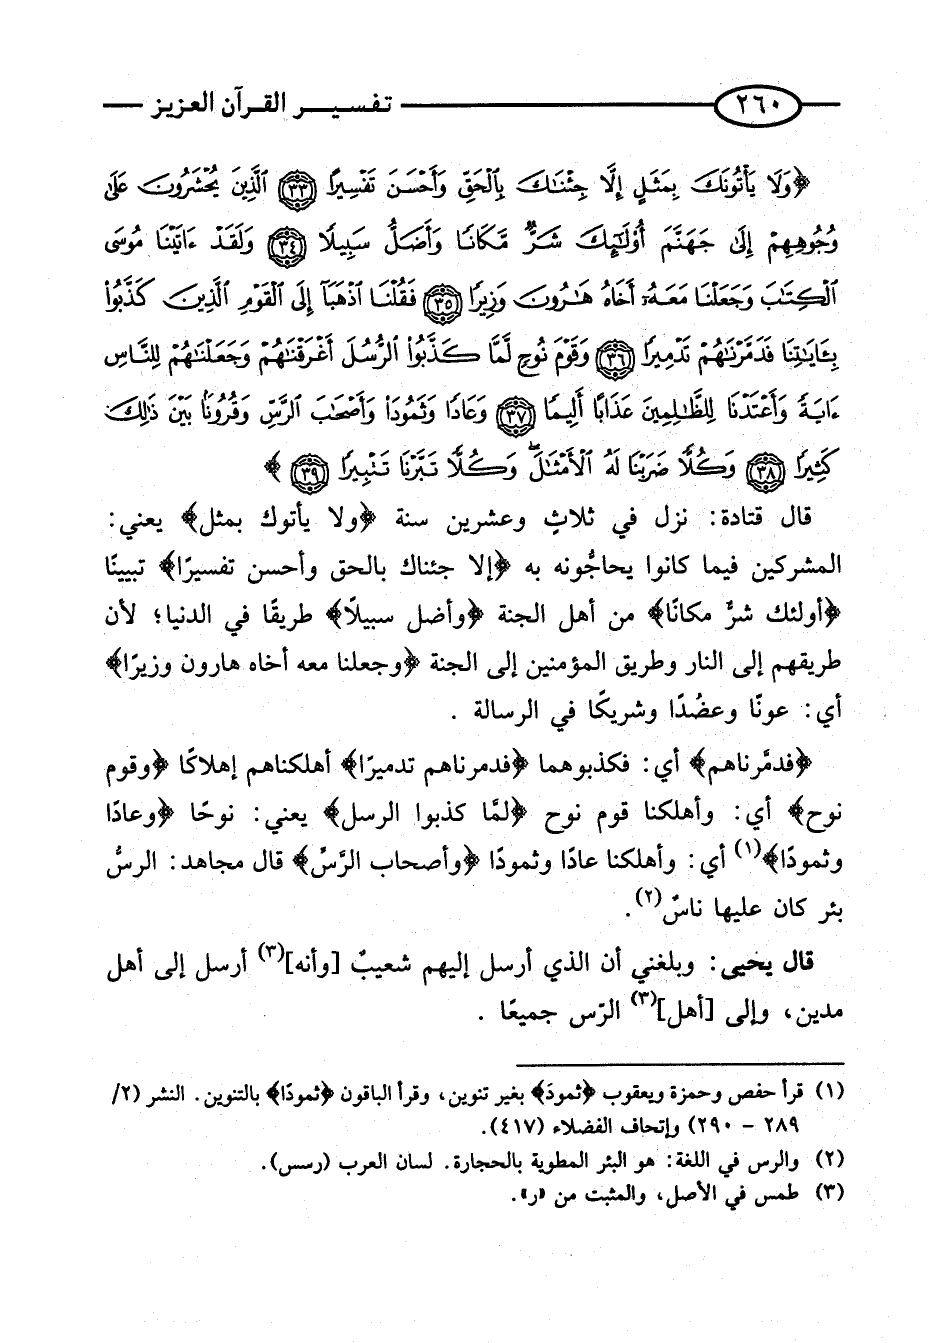 ٢٦٠ تفسير القرآن العزيز
﴿وَلَا يَأْتُونَكَ بِمَثَلٍ إِلَّا جِئْنَاكَ بِالْحَقِّ وَأَحْسَنَ تَفْسِيرًا ﴿٣٣﴾ الَّذِينَ يُحْشَرُونَ عَلَىٰ
وُجُوهِهِمْ إِلَىٰ جَهَنَّمَ أُوْلَٰئِكَ شَرٌّ مَّكَانًا وَأَضَلُّ سَبِيلًا ﴿٣٤﴾ وَلَقَدْ ءَاتَيْنَا مُوسَى
الْكِتَٰبَ وَجَعَلْنَا مَعَهُۥٓ أَخَاهُ هَٰرُونَ وَزِيرًا ﴿٣٥﴾ فَقُلْنَا اذْهَبَآ إِلَى الْقَوْمِ الَّذِينَ كَذَّبُوا۟
بِـَٔايَٰتِنَا فَدَمَّرْنَٰهُمْ تَدْمِيرًا ﴿٣٦﴾ وَقَوْمَ نُوحٍ لَّمَّا كَذَّبُوا۟ الرُّسُلَ أَغْرَقْنَٰهُمْ وَجَعَلْنَٰهُمْ لِلنَّاسِ
ءَايَةً وَأَعْتَدْنَا لِلظَّٰلِمِينَ عَذَابًا أَلِيمًا ﴿٣٧﴾ وَعَادًا وَثَمُودَا۟ وَأَصْحَٰبَ الرَّسِّ وَقُرُونًۢا بَيْنَ ذَٰلِكَ
كَثِيرًا ﴿٣٨﴾ وَكُلًّا ضَرَبْنَا لَهُ الْأَمْثَٰلَ ۖ وَكُلًّا تَبَّرْنَا تَتْبِيرًا ﴿٣٩﴾ ﴾
قال قتادة: نزل في ثلاثٍ وعشرين سنة ﴿ولا يأتوك بمثل﴾ يعني:
المشركين فيما كانوا يحاجُّونه به ﴿إلا جئناك بالحق وأحسن تفسيرًا﴾ تبيينًا
﴿أولئك شرٌّ مكانًا﴾ من أهل الجنة ﴿وأضل سبيلاً﴾ طريقًا في الدنيا؛ لأن
طريقهم إلى النار وطريق المؤمنين إلى الجنة ﴿وجعلنا معه أخاه هارون وزيرًا﴾
أي: عونًا وعضُدًا وشريكًا في الرسالة .
﴿فدمَّرناهم﴾ أي: فكذبوهما ﴿فدمرناهم تدميرًا﴾ أهلكناهم إهلاكًا ﴿وقوم
نوح﴾ أي: وأهلكنا قوم نوح ﴿لمَّا كذبوا الرسل﴾ يعني: نوحًا ﴿وعادًا
وثمودًا﴾(١) أي: وأهلكنا عادًا وثمودًا ﴿وأصحاب الرَّسِّ﴾ قال مجاهد: الرسُّ
بئر كان عليها ناسٌ(٢).
قال يحيى: وبلغني أن الذي أرسل إليهم شعيبٌ [وأنه](٣) أرسل إلى أهل
مدين، وإلى [أهل](٣) الرّس جميعًا .
(١) قرأ حفص وحمزة ويعقوب ﴿ثمودَ﴾ بغير تنوين، وقرأ الباقون ﴿ثمودًا﴾ بالتنوين. النشر (٢/
٢٨٩ – ٢٩٠) وإتحاف الفضلاء (٤١٧).
(٢) والرس في اللغة: هو البئر المطوية بالحجارة. لسان العرب (رسس).
(٣) طمس في الأصل، والمثبت من «ر».